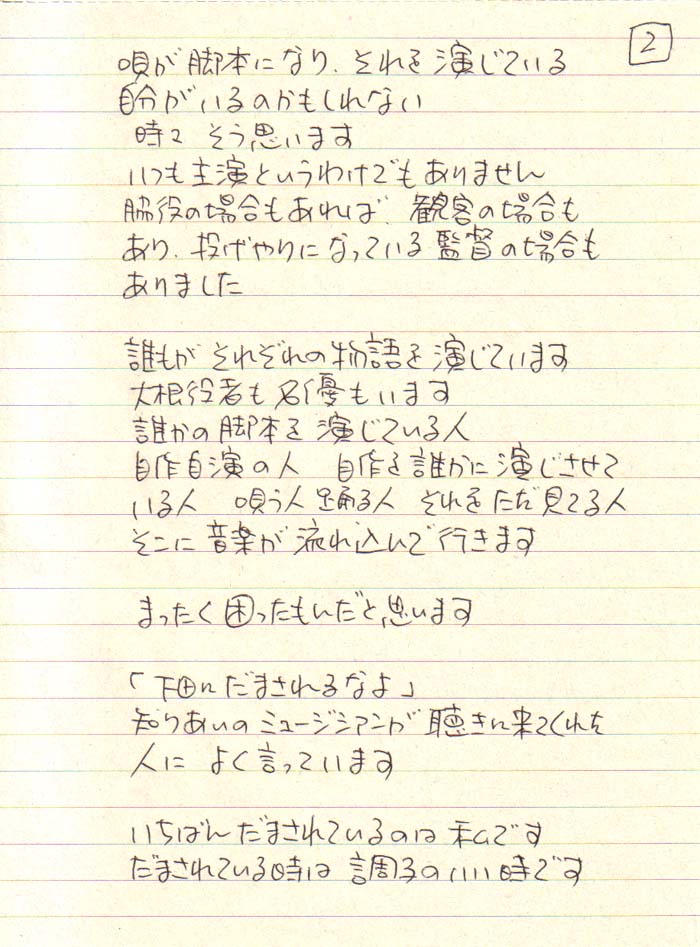 2
唄が脚本になり、それを演じている
自分がいるのかもしれない
時々 そう思います
いつも主演というわけでもありません
脇役の場合もあれば、観客の場合も
あり、投げやりになっている監督の場合も
ありました
誰もが それぞれの物語を演じています
大根役者も名優もいます
誰かの脚本を演じている人
自作自演の人 自作を誰かに演じさせて
いる人 唄う人 踊る人 それをただ見てる人
そこに音楽が流れ込んで行きます
まったく困ったもんだと思います
「下田にだまされるなよ」
知りあいのミュージシアンが聴きに来てくれた
人に よく言っています
いちばんだまされているのは私です
だまされている時は 調子のいい時です